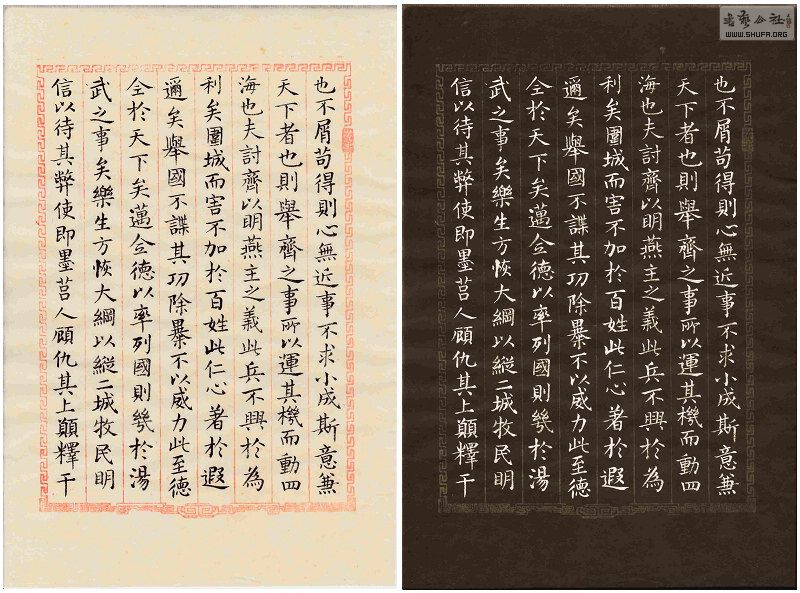 也不屑苟得則心無近事不求小成斯意兼
天下者也則舉齊之事所以運其機而動四
海也夫討齊以明燕主之義此兵不興於為
利矣圍城而害不加於百姓此仁心著於遐
邇矣舉國不謀其功除暴不以威力此至德
全於天下矣邁全德以率列國則幾於湯
武之事矣樂生方恢大綱以縱二城牧民明
信以待其弊使即墨莒人顧仇其上願釋干
书艺公社
WWW.SHUFA.ORG
也不屑苟得則心無近事不求小成斯意兼
天下者也則舉齊之事所以運其機而動四
海也夫討齊以明燕主之義此兵不興於為
利矣圍城而害不加於百姓此仁心著於遐
邇矣舉國不謀其功除暴不以威力此至德
全於天下矣邁全德以率列國則幾於湯
武之事矣樂生方恢大綱以縱二城牧民明
信以待其弊使即墨莒人顧仇其上願釋干